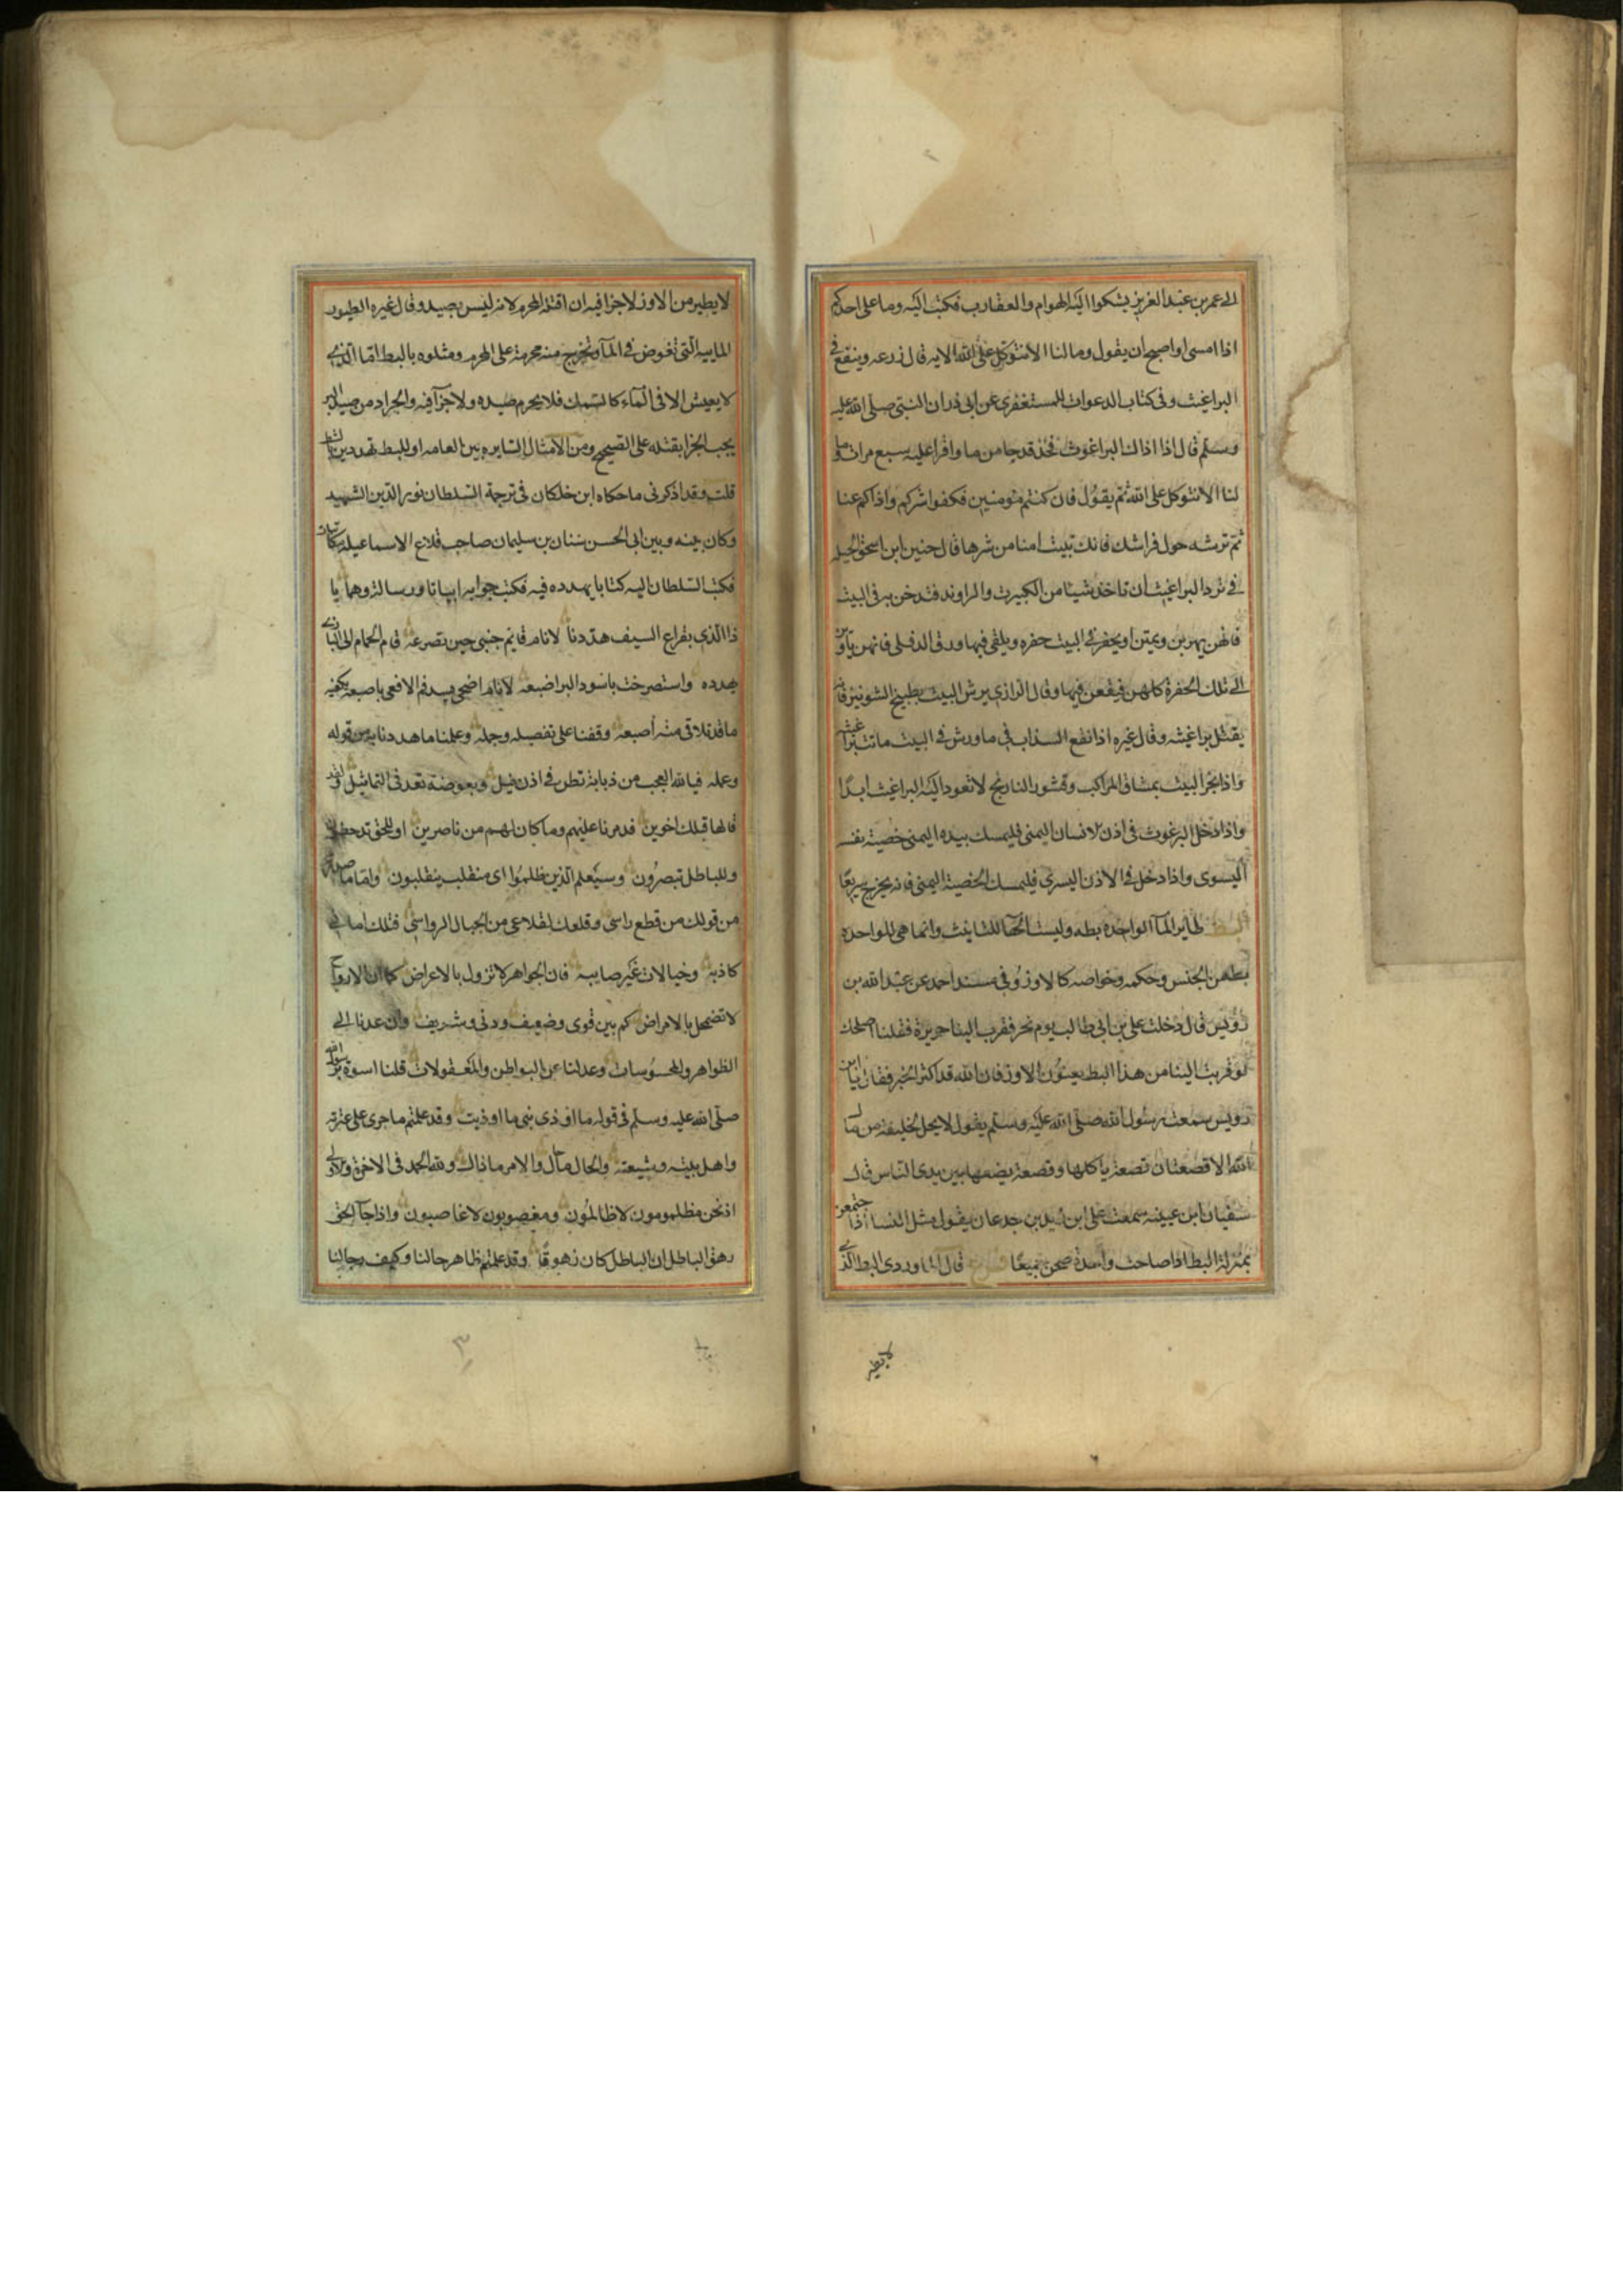 الى عمر بن عبد العزيز يشكوا اليه الهوام والعقارب فكتب اليه وما على احدكم
اذا امسى او اصبح ان يقول وما لنا الا نتوكل على الله الايه قال زرعه وينفع فى
البراغيث وفى كتاب الدعوات للمستغفرى عن ابى ذر ان النبى صلى الله عليه
وسلم قال اذا اذاك البراغوث فخذ قدحا من ما واقرا عليه سبع مرات وما
لنا الا نتوكل على الله ثم يقول فان كنتم مومنين فكفوا شركم واذاكم عنا
ثم ترشه حول فراشك فانك تبيت امنا من شرها قال حنين ابن اسحق الحيله
فى ترد البراغيث ان تاخذ شيئا من الكبريت والراوند فتدخن به فى البيت
فانهن يهربن ويمتن او يحفر فى البيت حفره ويلقى فيها ورق الدفلى فانهن ياوين
الى تلك الحفرة كلهن فيقعن فيها وقال الرازى يرش البيت بطبيخ الشونيز فانه
يقتل براغيثه وقال غيره اذا نقع السذاب فى ما ورش فى البيت ماتت براغيثه
واذا بخر البيت بمشاق المراكب وقشور النارنج لا تعود اليه البراغيث ابدا
واذا دخل البرغوث فى اذن الانسان اليمنى فليمسك بيده اليمنى خصية نفسه
اليسرى واذا دخل فى الاذن اليسرى فليمسك الخصية اليمنى فانه يخرج سريعا
البط طاير الماء الواحده بطه وليست الهآ للتانيث وانما هى للواحده
من الجنس وحكمه وخواصه كالاوز وفى مسند احمد عن عبد الله بن
رويس قال دخلت على بن ابى طالب يوم نحر فقرب الينا حريرة فقلنا اصلحك
لو قربت الينا من هذا البط يعنون الاوز فان الله قد اكثر الخير فقال يا ابن
رويس سمعت رسول الله صلى الله عليه وسلم يقول لا يحل لخليفة من مال
الله الا قصعتان قصعة ياكلها وقصعة يضعها بين يدى الناس قال
سفيان ابن عيينه سمعت على ابن زيد بن جدعان يقول مثل النسا اذا اجتمعن
بمنزلة البط اذا صاحت واحدة صحن جميعا فرع قال الماوردى البط الذى
لا يطير
لا يطير من الاوز لا جزا فيه ان اقتله المحرم لانه ليس بصيد وقال غيره الطيور
الماييه التى تغوض فى المآ وتخرج منه محرمة على المحرم ومثلوه بالبط اما الذى
لا يعيش الا فى الماء كالسمك فلا يحرم صيده ولا جزآ فيه والجراد من صيد البر
يجب الجزا بقتله على الصحيح ومن الامثال السايره بين العامه او للبط تهددين بالشط
قلت وقد اذكرنى ما حكاه ابن خلكان فى ترجمة السلطان نور الدين الشهيد
وكان بينه وبين ابى الحسن سنان بن سليمان صاحب قلاع الاسماعيليه مكاتبات
فكتب السلطان اليه كتابا يهدده فيه فكتب جوابه ابياتا ورسالة وهما يا
ذا الذى بقراع السيف هددنا لا نام قايم جنبى حين تصرعه قام الحمام الى البازى
يهدده واستصرخت باسود البر اضبعه لانام اضحى يسد فم الافعى باصبعه يكفيه
ما قد تلاقى منه اصبعه وقفنا على تفصيله وجمله وعلمنا ما هددنا به من قوله
وعمله فيا لله العجب من ذبابة تطن فى اذن فيل وبعوضة تعد فى التماثيل ولقد
قالها قبلك اخرين فدمرنا عليهم وما كان لهم من ناصرين او للحق تدحضون
وللباطل تنصرون وسيعلم الذين ظلموا اى منقلب ينقلبون واما ما صدر
من قولك من قطع راسى وقلعك لقلاعى من الجبال الرواسى فتلك امانى
كاذبه وخيالات غير صايبه فان الجواهر لا تزول بالاعراض كما ان الارواح
لا تضمحل بالامراض كم بين قوى وضعيف ودنى وشريف وان عدنا الى
الظواهر والمحسوسات وعدلنا عن البواطن والمعقولات قلنا اسوة برسول الله
صلى الله عليه وسلم فى قوله ما اوذى نبى ما اوذيت وقد علمتم ما جرى على عترته
واهل بيته وشيعته والحال ما حال والامر ما ذاك ولله الحمد فى الاخرة والاولى
اذ نحن مظلومون لا ظالمون ومغصوبون لا غاصبون واذا جآ الحق
زهق الباطل ان الباطل كان زهوقا وقد علمتم ظاهر حالنا وكيف رجالنا